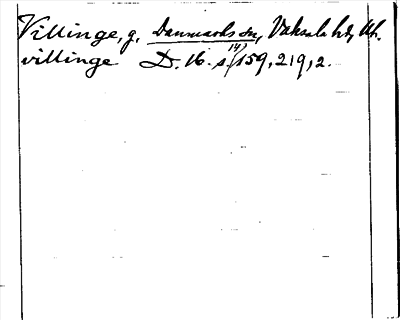 Villinge, g. Danmarks sn, Vaksala hd, Upl.
villinge D. 16. s. 147/159, 219, 2.